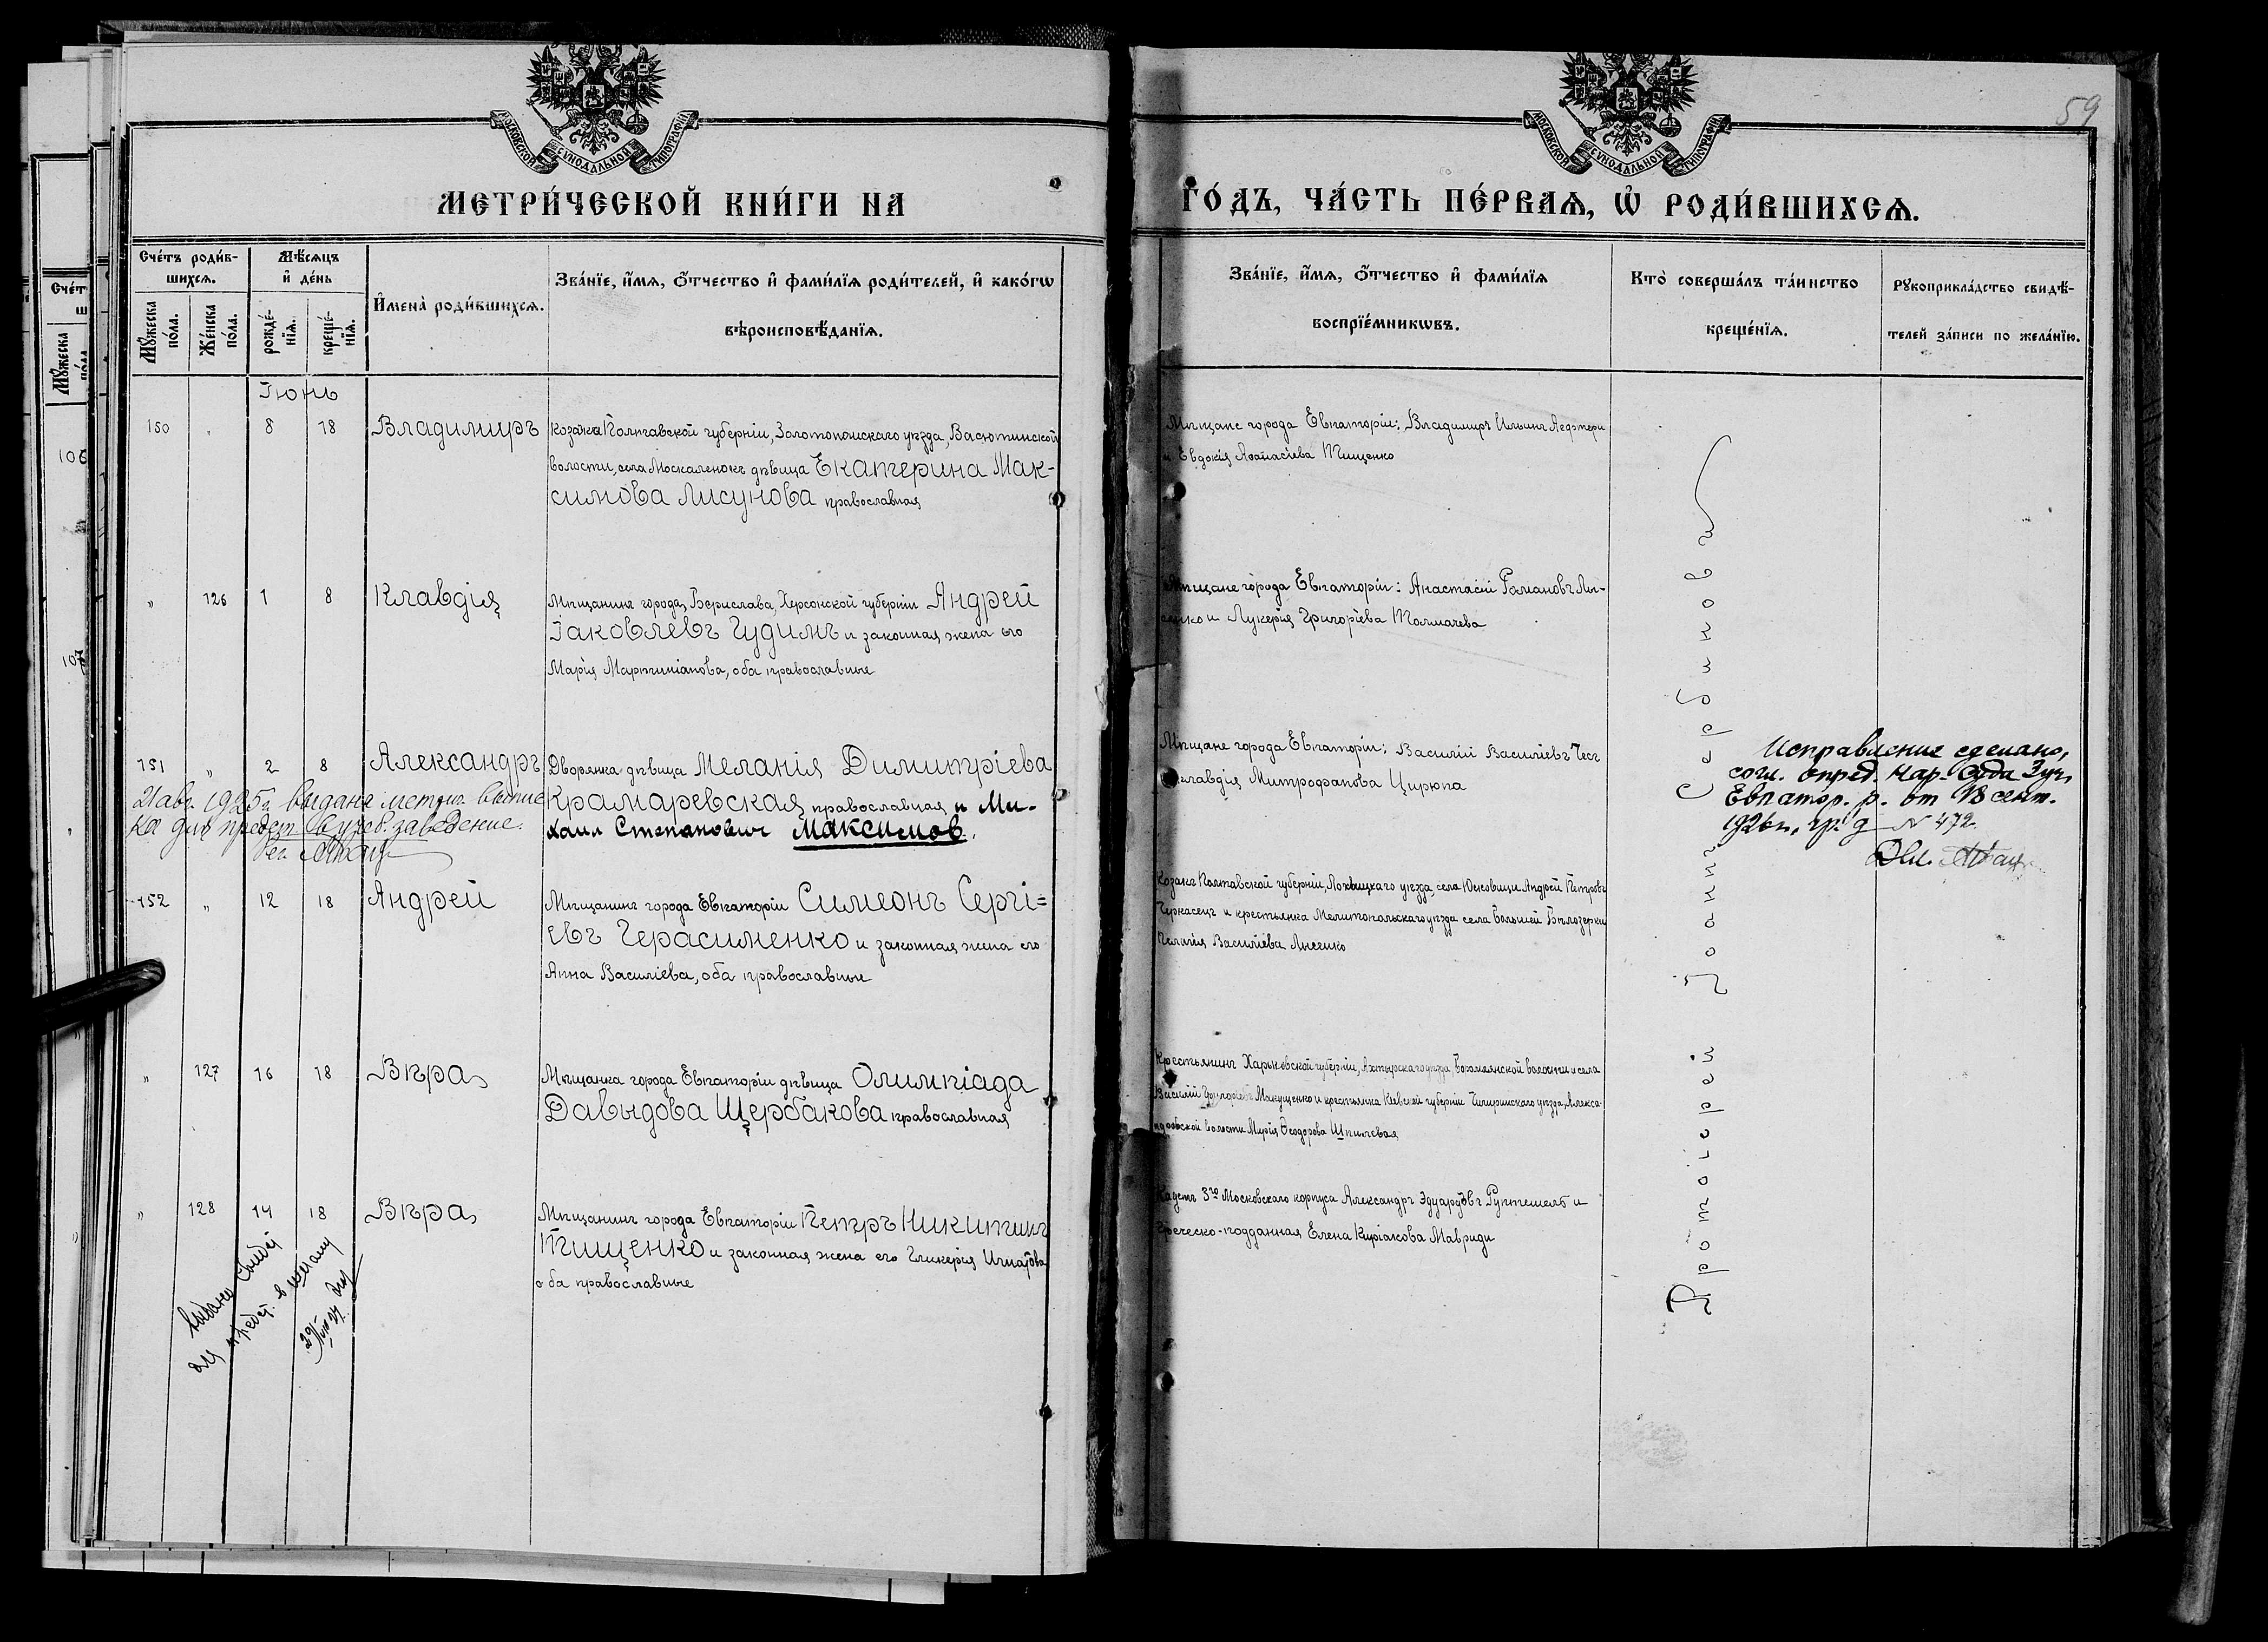 59
МОСКОВСКОЙ СѴНОДАЛЬНОЙ ТИПОГРАФІИ
МОСКОВСКОЙ СѴНОДАЛЬНОЙ ТИПОГРАФІИ
МЕТРИ́ЧЕСКОЙ КНИ́ГИ НА
ГО́ДЪ, ЧА́СТЬ ПЕ́РВАѦ, Ѡ҆ РОДИ́ВШИХСѦ.
Сче́тъ роди́в-
шихсѧ.
Мꙋ́жеска по́ла.
Же́нска по́ла.
Мѣ́сѧцъ
и҆ де́нь
рожде́-нїѧ.
креще́-нїѧ.
И҆мена̀ роди́вшихсѧ.
Зва́нїе, и҆́мѧ, ѻ҆́тчество и҆ фами́лїѧ роди́телей, и҆ како́гѡ
вѣроисповѣ́данїѧ.
Зва́нїе, и҆́мѧ, ѻ҆́тчество и҆ фами́лїѧ
воспрїе́мникѡвъ.
Кто̀ соверша́лъ та́инство
креще́нїѧ.
Рꙋкоприкла́дство свидѣ́-
телей за́писи по жела́нїю.
Іюнь
150 " 8 18 Владиміръ
Козачка Полтавской губерніи, Золотоношскаго уѣзда, Васютинской
волости, села Москаленокъ дѣвица Екатерина Мак-
симова Лисунова православная
Мѣщане города Евпаторіи: Владиміръ Ильинъ Лефтери
и Евдокія Аѳанасіева Тищенко
" 126 1 8 Клавдія
Мѣщанинъ города Берислава, Херсонской губерніи Андрей
Іаковлевъ Чудимъ и законная жена его
Марія Мартиніанова, оба православные
Мѣщане города Евпаторіи: Анастасій Романовъ Ли-
сенко и Лукерія Григоріева Толмачева
151 " 2 8 Александръ
Дворянка дѣвица Меланія Димитріева
Крамаревская православная и Ми-
хаил Степанович Максимов.
21 авг. 1925 г. выдана метрич. выпис
ка для предст. в учеб. заведение.
Мѣщане города Евпаторіи: Василій Василіевъ
Клавдія Митрофанова Цирюпа
Исправление сделано,
согл. опред. Нар. Суда 3 уч.
Евпатор. р. от 13 сент.
1926 г. гр. д N 472.
152 " 12 18 Андрей
Мѣщанинъ города Евпаторіи Симеонъ Сергі=
евъ Герасименко и законная жена его
Анна Василіева, оба православные
Козакъ Полтавской губерніи, Лохвицкаго уѣзда, села Юсковцы Андрей Петровъ
Черкасецъ и крестьянка Мелитопольскаго уѣзда села Большей Бѣлозерки
Пелагія Василіева Лысенко
" 127 16 18 Вѣра
Мѣщанка города Евпаторіи дѣвица Олимпіада
Давыдова Щербакова православная
Крестьянинъ Харьковской губерніи, Ахтырскаго уѣзда, Боромлянской волости и села
Василій Григоріевъ Макущенко и крестьянка Кіевской губерніи Чигиринскаго уѣзда, Алекса-
ндровской волости Марія Ѳеодорова Шпилевая
" 128 14 18 Вѣра
Мѣщанинъ города Евпаторіи Петръ Никитинъ
Тищенко и законная жена его Гликерія Игнатова
оба православные
Кадетъ 3го Московскаго корпуса Александръ Эдуардовъ Руптешель и
Греческо-подданная Елена Киріакова Мавриди
Протоіерей Іоаннъ Сербиновъ
106
107